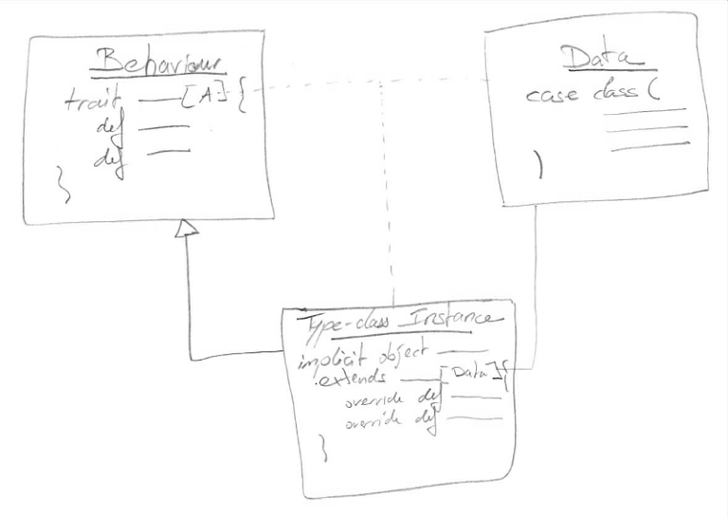 Behaviour
trait [A] {
def
def
}
Data
case class (
)
Type-class Instance
implicit object
extends [Data] {
override def
override def
}